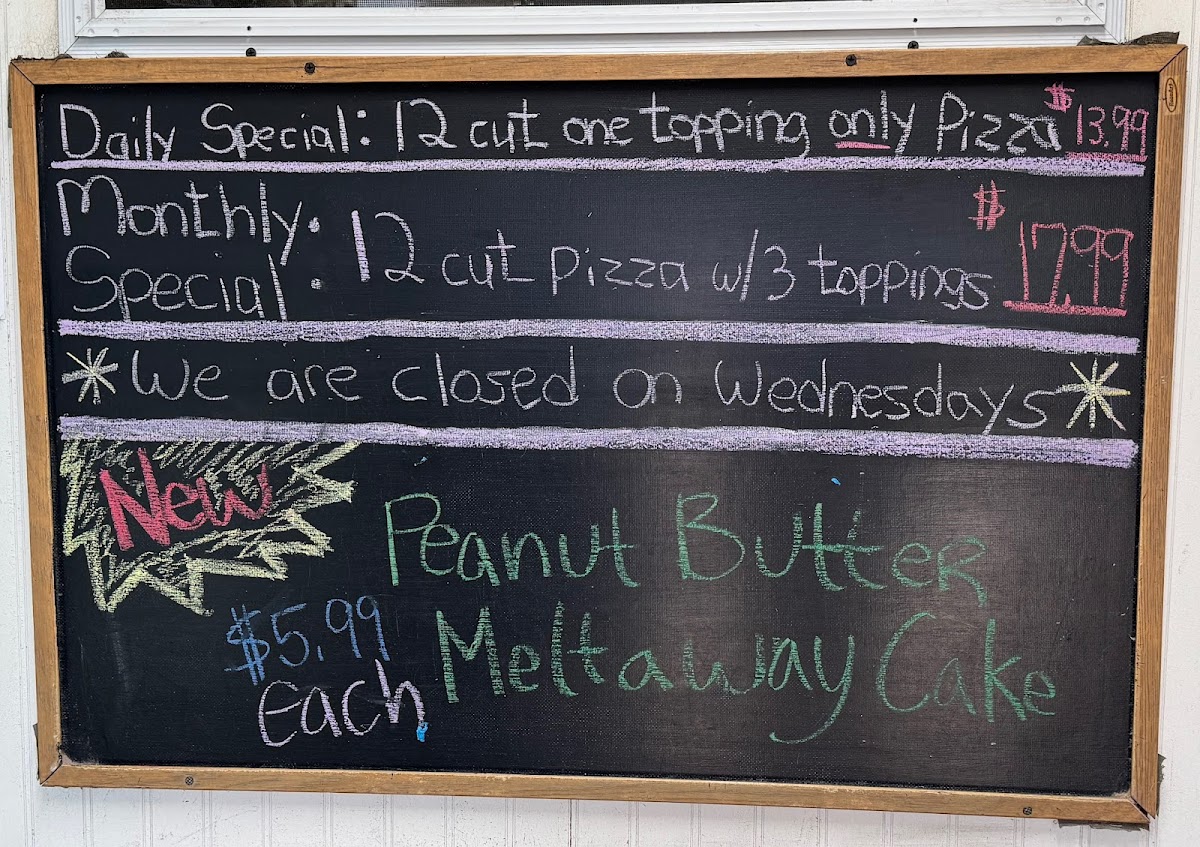 Daily Special: 12 cut one topping only Pizza $13.99
Monthly Special: 12 cut pizza w/3 toppings $17.99
*We are closed on Wednesdays*
New
Peanut Butter
Meltaway Cake
$5.99
Each